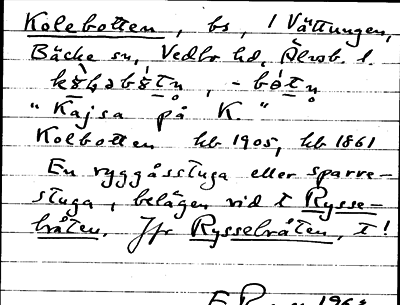 Kolebotten, bs, i Vättungen,
Bäcke sn, Vedbo hd, Älvsb. l.
"Kajsa på K."
Kolbotten hb 1905, hb 1861
En ryggåsstuga eller sparre-
stuga, belägen vid t Rysse-
bråten. Jfr Rysselbråten, t!